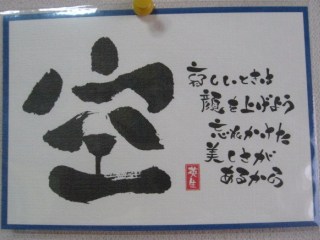 空
寂しいときは
顔を上げよう
忘れかけた
美しさが
あるから